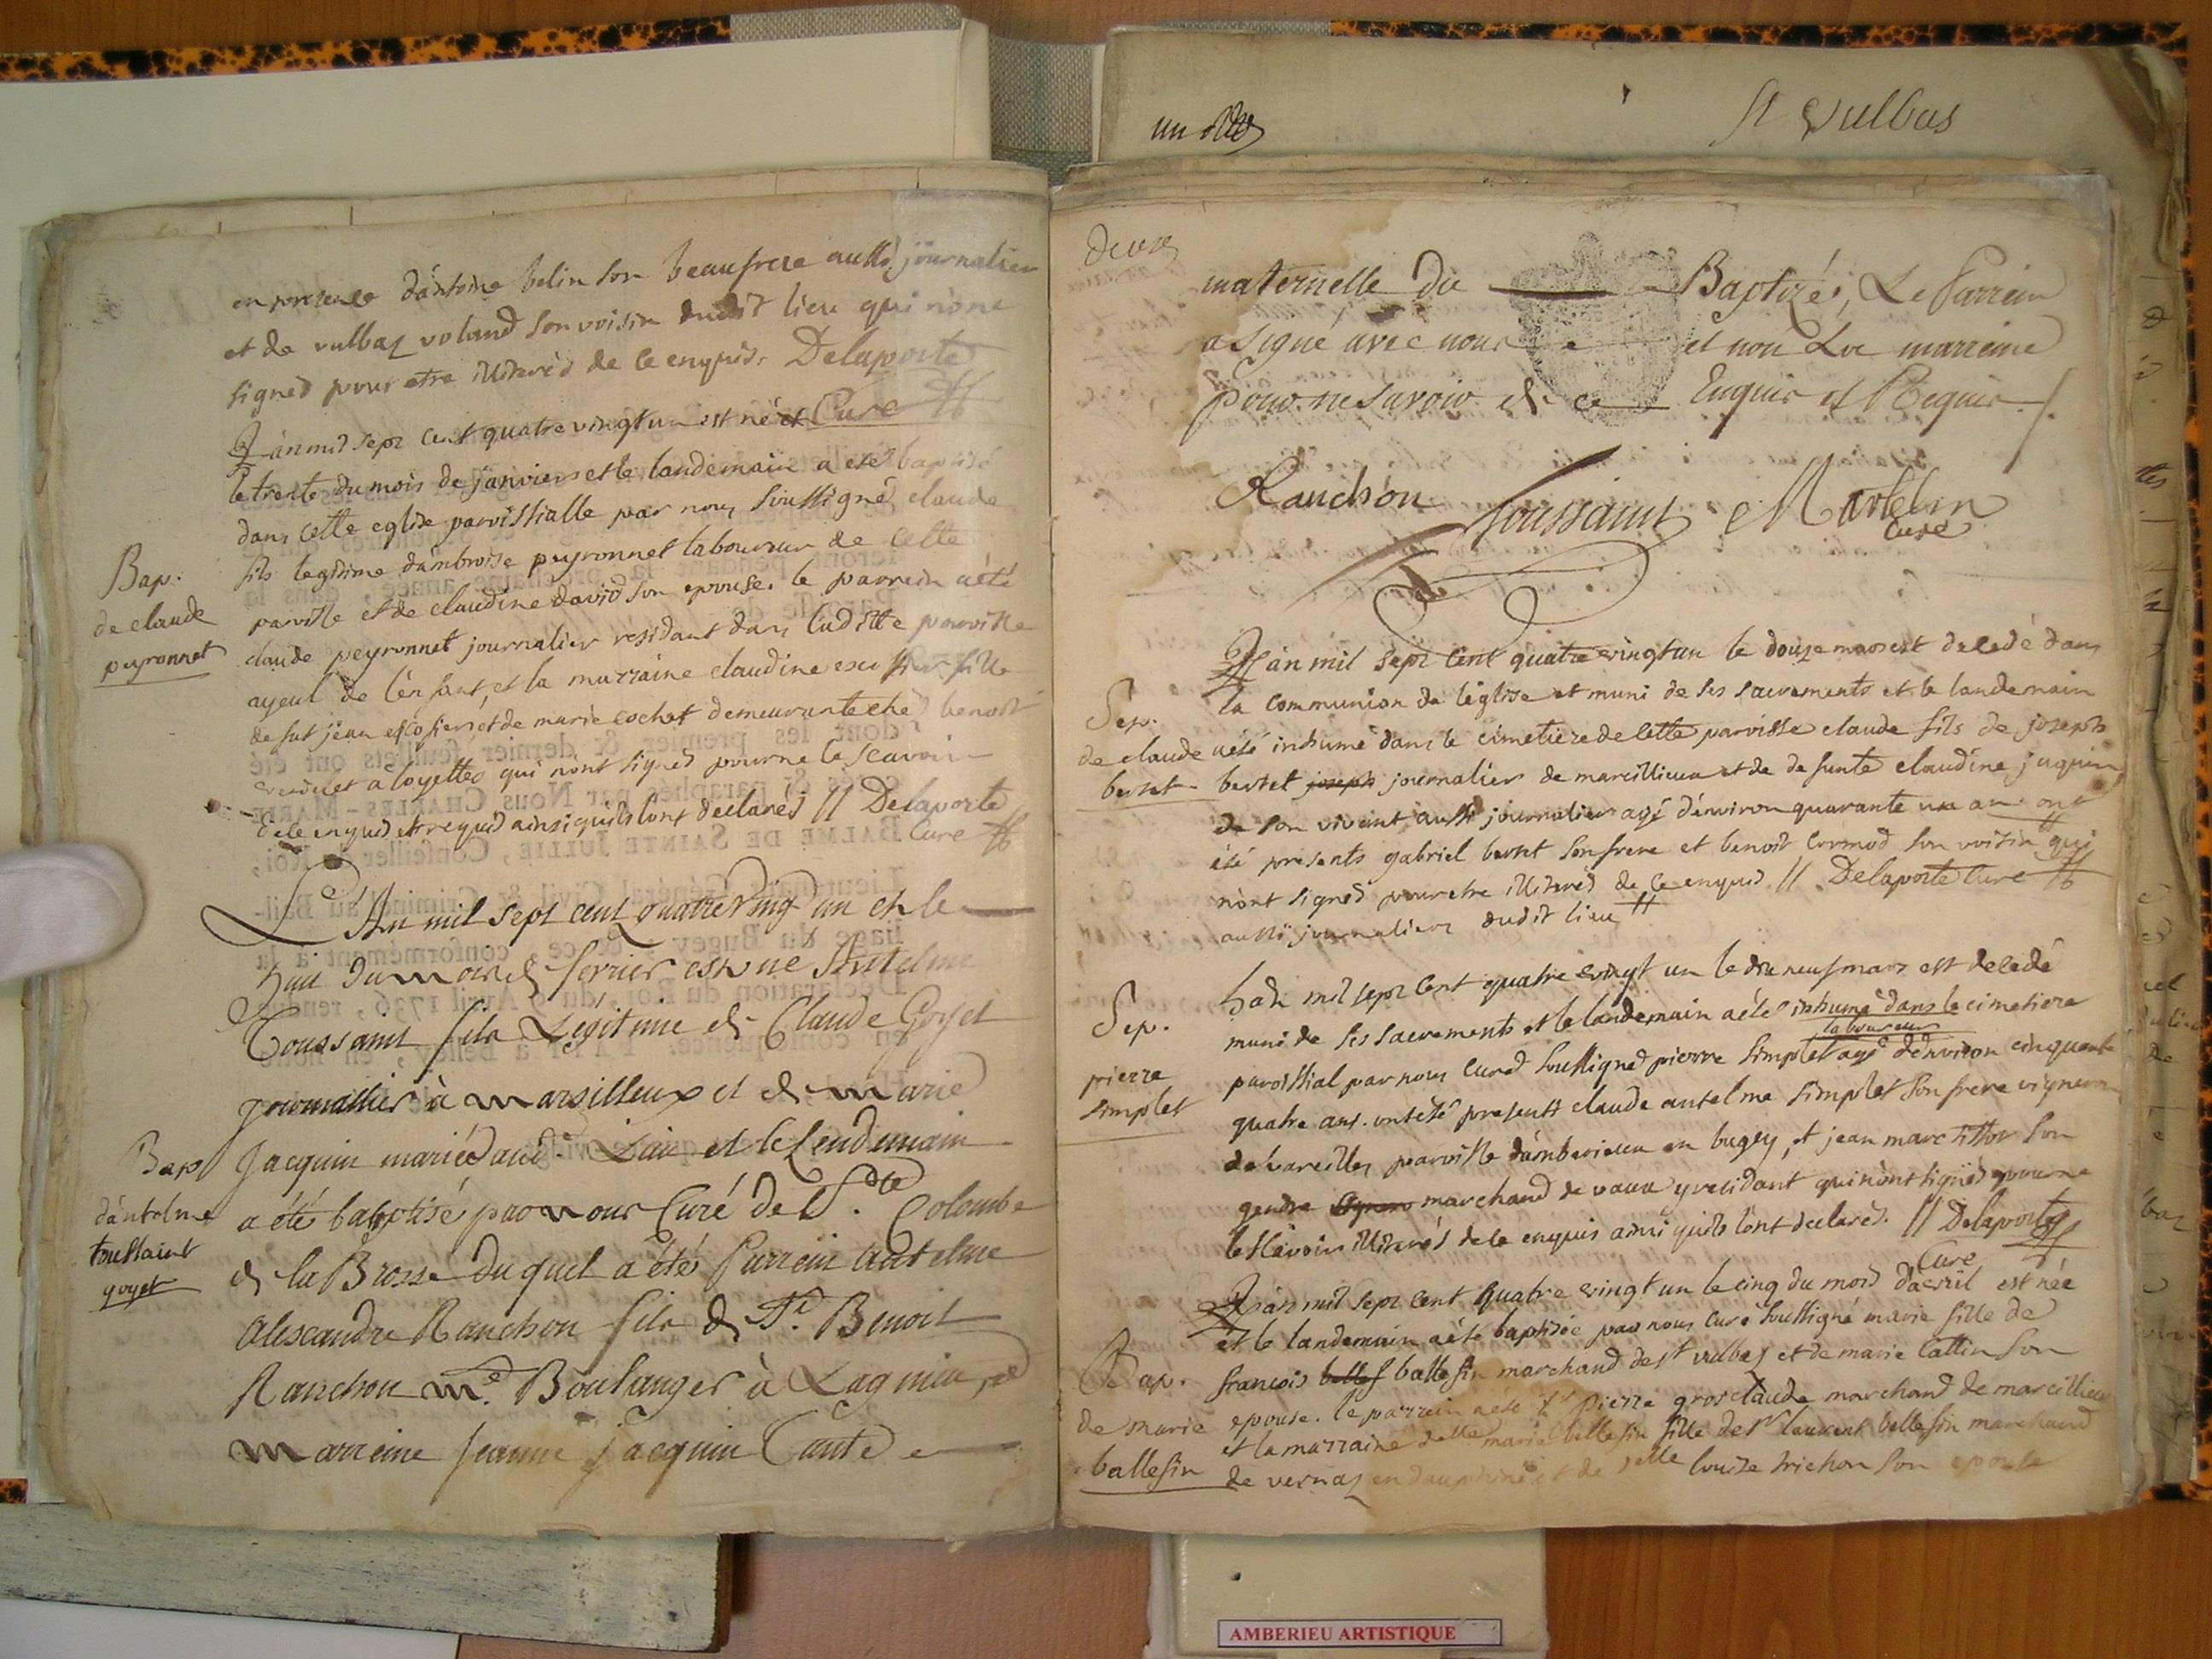 en presence d'antoine belin son beaufrere aussi journalier
et de vulbaz voland son voisin dudit lieu qui n'ont
signed pour etre illiteréd de ce enquis. Delaporte
Curé
L'an mil sept cent quatre vingt un est né et
le trente du mois de janviers et le landemain a eté baptisé
dans cette eglise parroissialle par nous soussigné, claude
fils legitime d'ambroise peyronnet laboureur de cette
parroisse et de claudine david son epouse. le parrein a été
claude peyronnet journalier residant dans luditte parroisse
ayeul de l'enfant, et la marraine claudine escossier fille
de fut jean escossier et de marie cochet demeurante ched benoit
a loyettes qui n'ont signed pour ne le scavoir
de ce enquis et requis ainsi quils l'ont declarés // Delaporte
Curé
Bap.
de claude
peyronnet
L'An mil sept cent quatre Vingt un et le
huit du mois de fevrier est né Antelme
Toussaint fils Legitime de Claude Goyet
journallier à marsilleux et de marie
Jacquin mariés aud. Lieu et le Lendemain
a été baptisé par nous Curé de Ste. Colombe
de la Brosse duquel a été Parrein Antelme
Alexandre Ranchon fils de Sr. Benoit
Ranchon md. Boulanger à Lagnieu, et
marreine Jeanne Jacquin Tante
Bap
d'antelme
toussaint
goyet
St Vulbas
un
Deux
maternelle du Baptizé, Le Parrein
a signé avec nous et non La marreine
pour ne savoir de ce Enquis et Requis.
Ranchon Toussaint Martelin
Curé
L'an mil sept cent quatre vingt un le douze mars est decedé dans
la communion de l'eglise et muni de ses sacrements et le landemain
a été inhumé dans le cimetiere de cette parroisse claude fils de joseph
bertet joseph journalier de marcillieux et de defunte claudine juquin
de son vivant aussi journalier agé d'environ quarante un an ont
été presents gabriel bertet son frere et benoit cormod son voisin qui
n'ont signed pour etre illiteréd de ce enquis // Delaporte Curé
aussi journaliers dudit lieu
Sep.
de claude
bertet
L'an mil sept cent quatre vingt un le dix neuf mars est decedé
muni de ses sacrements et le landemain a été inhumé dans le cimetiere
laboureur
paroissial par nous curé soussigned pierre simplet agé d'environ cinquante
quatre ans. ont été presents claude antelme simplet son frere vigneron
de vareilles parroisse d'amberieux en bugey, et jean marc tissot son
gendre marchand de vaux y residant qui n'ont signed pour ne
le scavoir illiterés de ce enquis ainsi quils l'ont declarés. // Delaporte
Curé
Sep.
pierre
simplet
L'an mil sept cent quatre vingt un le cinq du mois d'avril est née
et le landemain a été baptisée par nous curé soussigné marie fille de
francois ballesin marchand de st vulbas et de marie cattin son
epouse. le parrein a été Sr pierre grosclaude marchand de marcillieux
et la marraine delle marie ballesin fille de Sr laurent ballesin marchand
de vernas en dauphiné et de delle louise trichon son epouse
Bap.
de marie
ballesin
AMBERIEU ARTISTIQUE